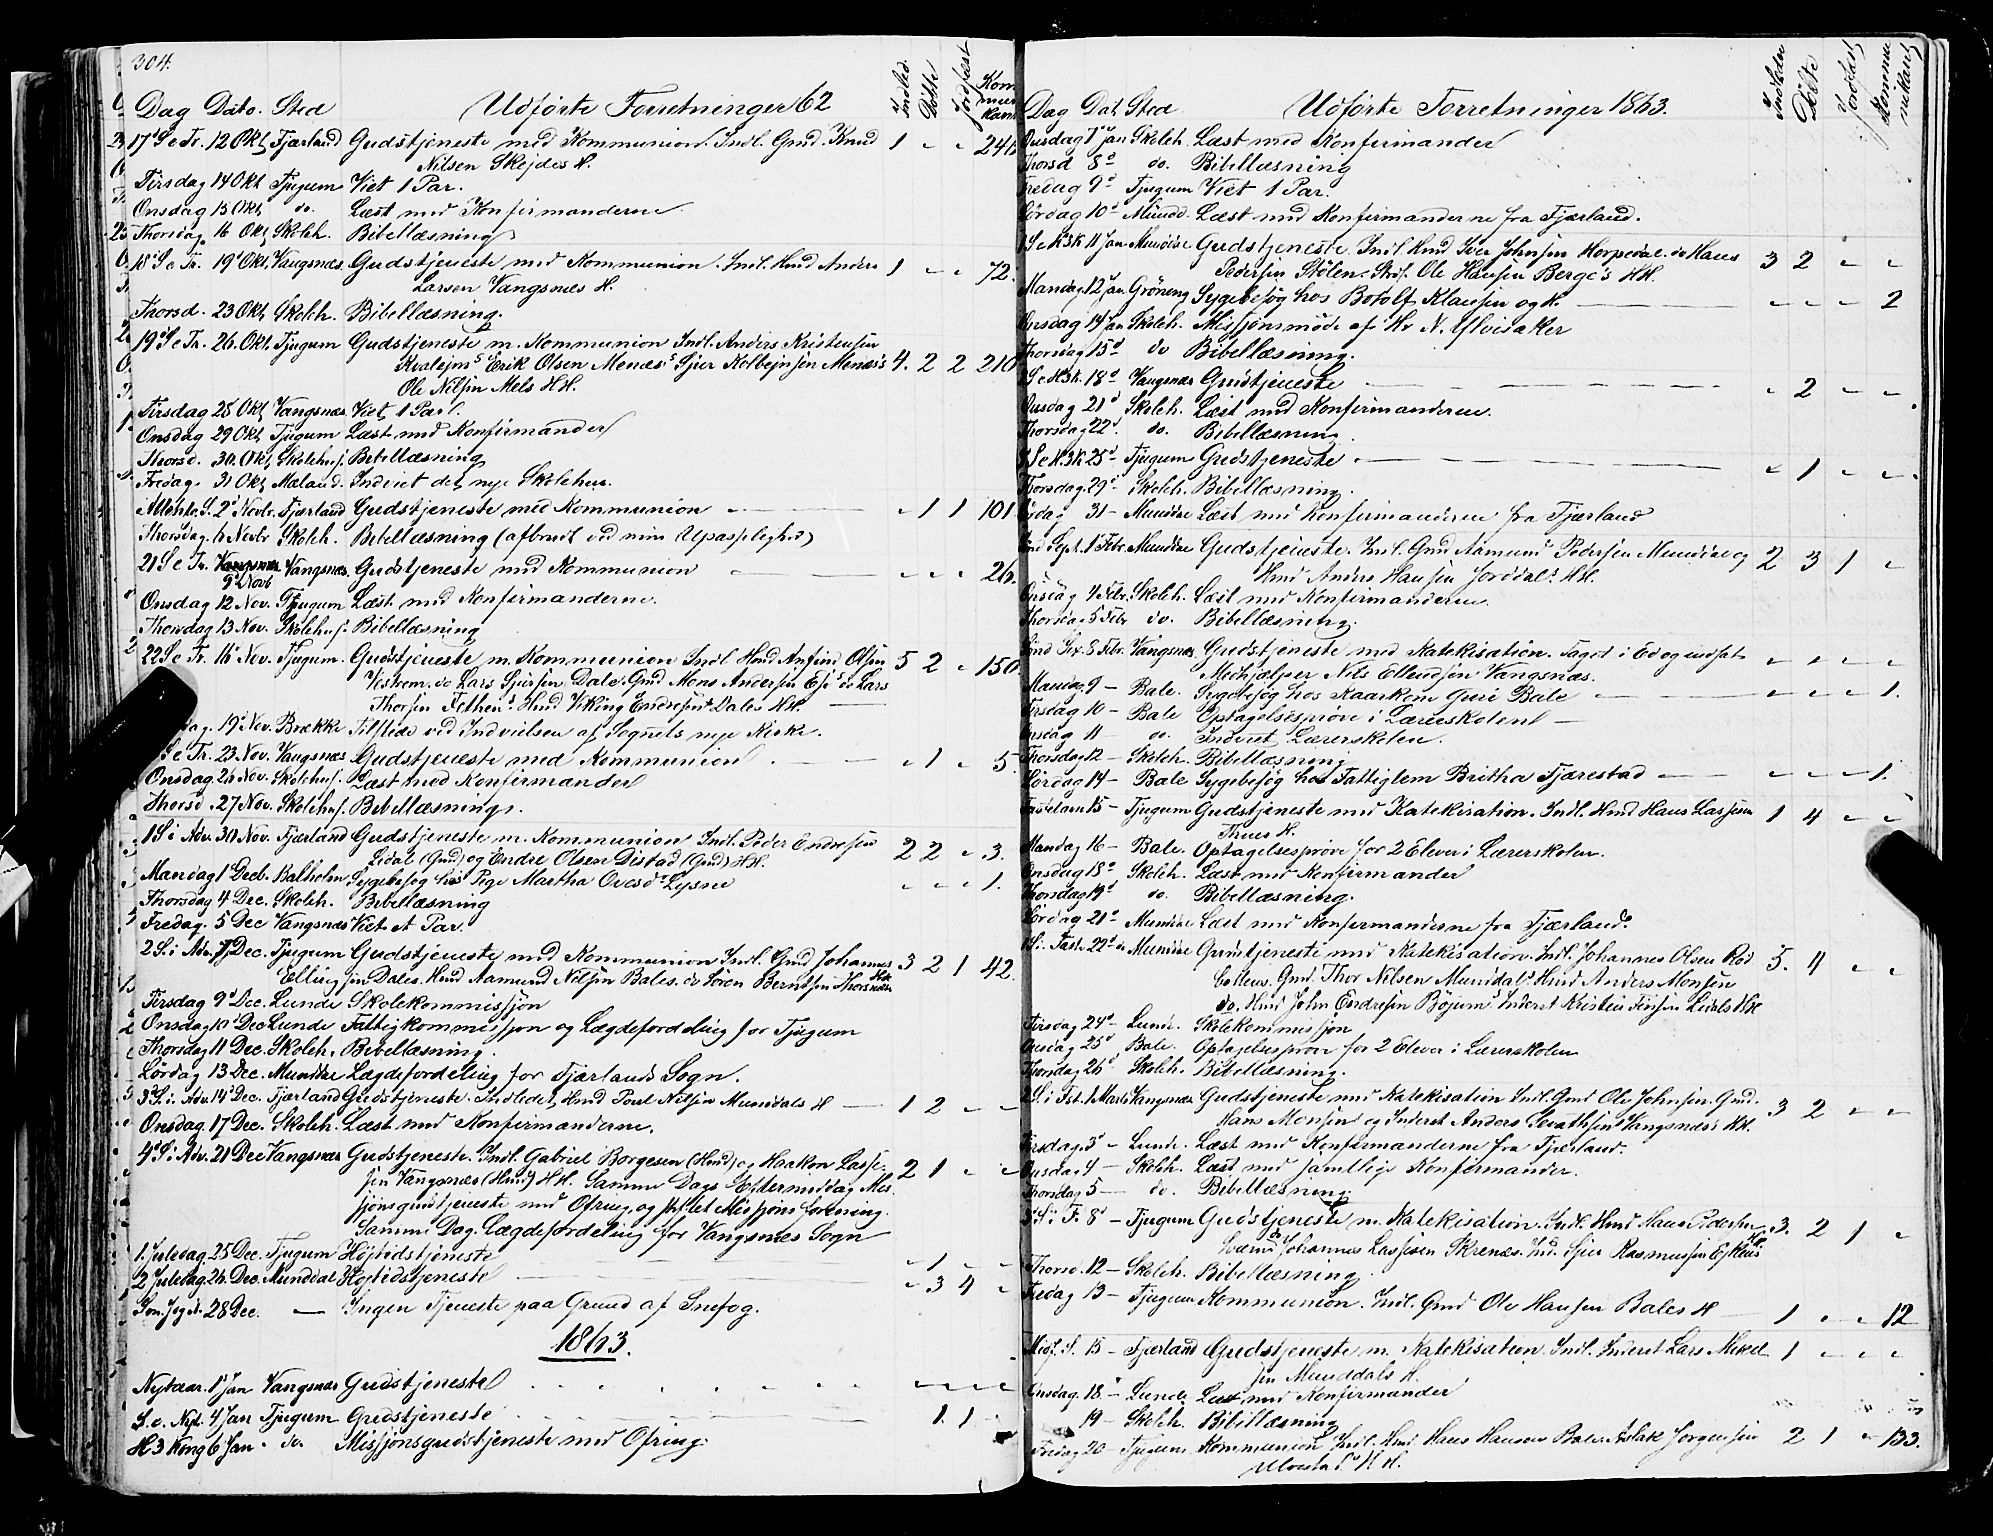 304.
Dag Dato. Sted Udførte Forretninger 62 Indled. Döbte Jordfæst Kommunikant
17 S e Tr. 12 Okt Fjærland Gudstjeneste med Kommunion. Indl. Gmd. Knud 1 " " 246
Nilsen Skejdes H.
Tirsdag 14 Okt Tjugum Viet 1 Par.
Onsdag 15 Okt do. Læst med Konfirmanderne
Thorsdag 16 Okt Skoleh. Bibellæsning
18 S e Tr. 19 Okt. Vangsnæs. Gudstjeneste med Kommunion. Indl. Hmd Anders 1 " " 72.
Larsen Vangsnæs H.
Thorsd. 23 Okt. Skoleh. Bibellæsning.
19 S e Tr. 26. Okt. Tjugum Gudstjeneste m. Kommunion Indl. Anders Kristensen
Kvalejms Erik Olsen Menæs's Sjur Kolbejnsen Menæs's 4. 2 2 210
Ole Nilsen Mels HH.
Tirsdag 28 Okt Vangsnæs. Viet 1 Par.
Onsdag 29 Okt Tjugum Læst med Konfirmander
Thorsd. 30. Okt. Skolehus. Bibellæsning
Fredag. 31 Okt Mæland. Indviet det nye Skolehus.
Allehle. S. 2 Novbr. Fjærland Gudstjeneste med Kommunion " 1 1 101
Thorsdag. 6 Novbr Skoleh. Bibellæsning (afbrudt ved min Upasselighed)
21 S e Tr. 9 Nov Vangsnæs. Gudstjeneste med Kommunion " " " 26.
Onsdag 12 Nov. Tjugum Læst med Konfirmanderne.
Thorsdag 13 Nov. Skolehus. Bibellæsning
22 S e Tr. 16 Nov. Tjugum. Gudstjeneste m. Kommunion Indl Hmd Anfind Olsen 5 2 " 150
Vestrem. do Lars Sjursen Dale. Gmd Mons Andersen Ese's do Lars
Thorsen Fethen's Hmd Viking Endresen Dales HH.
19 Nov. Brække Tilstede ved Indvielsen af Sognets nye Kirke.
S e Tr. 23 Nov. Vangsnæs Gudstjeneste med Kommunion " 1 " 5.
Onsdag 26 Nov. Skolehus. Læst med Konfirmander
Thorsd. 27 Nov. Skolehus. Bibellæsning.
1 S i Adv. 30 Nov. Fjærland Gudstjeneste m. Kommunion Indl. Peder Endresen
Lidal (Gmd) og Endre Olsen Distad (Gmd) HH. 2 2 " 3.
Mandag 1 Decb. Balholm Sygebesøg hos Pige Martha Ovesdr Lysne " " " 1.
Thorsdag 4 Dec. Skoleh. Bibellæsning
Fredag. 5 Dec Vangsnæs Viet et Par.
2 S. i Adv. 7 Dec. Tjugum Gudstjeneste med Kommunion Indl. Gmd Johannes 3 2 1 42.
Ellingsen Dales. Hmd Aamund Nilsen Bales. do Sören Berntsen Thorsnæs HH.
Tirsdag 9 Dec. Lunde Skolekommissjon
Onsdag 10 Dec Lunde Fattigkommissjon og Lægdefordeling for Tjugum
Thorsdag 11 Dec. Skoleh. Bibellæsning.
Lørdag 13 Dec. Munddal Lægdefordeling for Fjærlands Sogn.
3 S. i. Adv. 14 Dec. Fjærland Gudstjeneste. Indledet, Hmd Poul Nilsen Munddals H 1 2 " "
Onsdag. 17 Dec. Skoleh. Læst med Konfirmanderne.
4 S i Adv. 21 Dec Vangsnæs Gudstjeneste. Indl. Gabriel Borgesen (Hmd) og Haakon Lasse- 2 1 " "
sen Vangsnæs (Hmd) HH. Samme Dags Eftermiddag Mis-
sjonsgudstjeneste med Ofring, og stiftet Missjonsforening.
Samme Dag. Lægdefordeling for Vangsnæs Sogn
1. Juledag. 25 Dec. Tjugum Højtidstjeneste " 1 " "
2 Juledag. 26. Dec. Munddal Højtidstjeneste " 3 4 "
28 Dec. — Ingen Tjeneste paa Grund af Snefog.
1863.
Nytaar. 1 Jan Vangsnæs Gudstjeneste " " " "
S. e. Nyt. 4 Jan Tjugum Gudstjeneste 1. 1
H 3 Kong 6 Jan. do. Missjonsgudstjeneste med Ofring.
Dag Dat. Sted Udførte Forretninger 1863. Indleder Döbte Jordfæst Kommunikant
Onsdag 7 Jan Skoleh. Læst med Konfirmander
Thorsd 8 do. Bibellæsning
Fredag 9 Tjugum Viet 1 Par.
Lördag 10 Mundd. Læst med Konfirmanderne fra Fjærland.
1 S e H3K 11 Jan Munddal Gudstjeneste Indl. Hmd Iver Johnsen Horpedal. do Hans 3 2 " "
Pedersen Stölen. Ole Hansen Berge's HH.
Mandag. 12 Jan Gröneng Sygebesøg hos Botolf Klausen og H. " " " 2
Onsdag 14 Jan Skoleh. Missjonsmöde af Hr N. Ylvisaker
Thorsdag 15 do Bibellæsning.
S e H3K. 18 Vangsnæs Gudstjeneste " 2 " "
Onsdag 21 Skoleh. Læst med Konfirmanderne.
Thorsdag 22 do. Bibellæsning.
3 S e H3K 25 Tjugum Gudstjeneste " 1 " "
Thorsdag. 29 Skoleh. Bibellæsning.
31 — Munddal Læst med Konfirmanderne fra Fjærland
Sept. 1 Febr. Munddal Gudstjeneste. Indl. Gmd Aamund Pedersen Munddal og 2 3 1 "
Hmd Anders Hansen Jorddals HH.
Onsdag 4 Febr. Skoleh. Læst med Konfirmanderne.
Thorsdag. 5 Febr do. Bibellæsning.
Sex. 8 Febr. Vangsnæs Gudstjeneste med Katekisation. Taget i Ed og indsat " " " "
Medhjælper Nils Ellendsen Vangsnæs.
Mandag. 9 — Bale. Sygebesøg hos Kaarkone Guri Bale " " " 1.
Tirsdag 10 — Bale Optagelsesprøve i Lærerskolen
Onsdag 11 — do. Indviet Lærerskolen.
Thorsdag 12 — Skoleh. Bibellæsning
Lördag 14 — Bale Sygebesøg hos Fattiglem Britha Fjærestad " " " 1.
Fastelavn 15 — Tjugum Gudstjeneste med Katekisation. Indl. Hmd Hans Lassesen 1 4 " "
Thues H.
Mandag 16 — Bale. Optagelsesprøve for 2 Elever i Lærerskolen.
Onsdag 18 Skoleh. Læst med Konfirmander
Thorsdag 19 do. Bibellæsning.
Lördag 21 Munddal Læst med Konfirmanderne fra Fjærland.
1 S. i. Faste 22 Munddal Gudstjeneste med Katekisation. Indl. Johannes Olsen Röd 5. 4 " "
Gmd. Thor Nilsen Munddal's Hmd Anders Monsen
do. Hmd John Endresen Böjum's Inderst Kristen Lidals HH
Tirsdag 24 — Lunde. Skolekommissjon
Onsdag 25 Bale. Optagelsesprøve for 2 Elever i Lærerskolen
Thorsdag 26 Skoleh. Bibellæsning.
2 S. i Fst. 1 Marts Vangsnæs Gudstjeneste med Katekisation Indl. Gmd Ole Johnsen. Gmd. 3 2 " "
Hans Monsen og Inderst Anders Vangsnæs's HH.
Tirsdag. 3 — Lunde. Læst med Konfirmanderne fra Fjærland.
Onsdag 4 — Skoleh. Læst med samtlige Konfirmander.
Thorsdag 5 — do. Bibellæsning.
3 S. i F. 8 — Tjugum Gudstjeneste m. Katekisation. Indl. Hmd Hans Pedersen 3. 2 1 "
Johannes Lassesen Skrenæs. Ind. Sjur Rasmussen HH.
Thorsd. 12 — Skoleh. Bibellæsning.
Fredag 13 — Tjugum Kommunion. Indl. Gmd Ole Hansen Bales H 1 " " 12
Midf. S. 15 — Fjærland Gudstjeneste m. Katekisation. Indl. Inderst Lars Mikel- 1 " " "
sen Munddals H.
Onsdag. 18 — Lunde. Læst med Konfirmander
19 — Skoleh. Bibellæsning
Fredag 20 — Tjugum. Kommunion Indl. Hmd Hans Hansen Bale. Aslak Jorgensen 2 1 " 133.
HH.